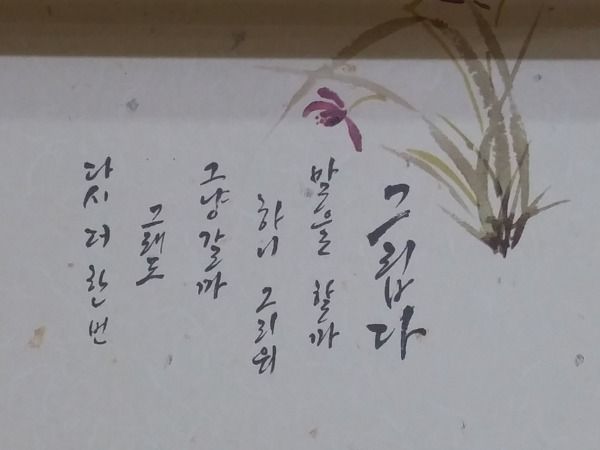 그립다
말을 할까
하니 그리워
그냥 갈까
그래도
다시 더 한번